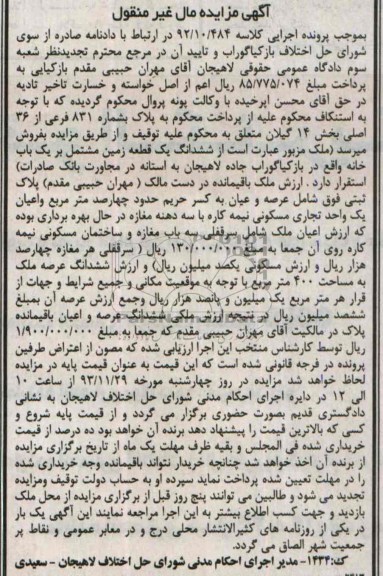 آگهی مزایده مال غیر منقول
بموجب پرونده اجرایی کلاسه ۹۲/۱۰/۴۸۴ در ارتباط با دادنامه صادره از سوی
شورای حل اختلاف بازکیاگوراب و تایید آن در مرجع محترم تجدیدنظر شعبه
سوم دادگاه عمومی حقوقی لاهیجان آقای مهران حبیبی مقدم بازکیایی به
پرداخت مبلغ ۸۵/۷۷۵/۰۷۴ ریال اعم از اصل خواسته و خسارت تاخیر تادیه
در حق آقای محسن ابرخیده با وکالت پونه پروال محکوم گردیده که با توجه
به استنکاف محکوم علیه از پرداخت محکوم به پلاک بشماره ۸۳۱ فرعی از ۳۶
اصلی بخش ۱۴ گیلان متعلق به محکوم علیه توقیف و از طریق مزایده بفروش
میرسد (ملک مزبور عبارت است از ششدانگ یک قطعه زمین مشتمل بر یک باب
خانه واقع در بازکیاگوراب جاده لاهیجان به استانه در مجاورت بانک صادرات)
استقرار دارد . ارزش ملک باقیمانده در دست مالک ( مهران حبیبی مقدم) پلاک
ثبتی فوق شامل عرصه و عیان به کسر حریم حدود چهارصد متر مربع واعیان
یک واحد تجاری مسکونی نیمه کاره با سه دهنه مغازه در حال بهره برداری بوده
که ارزش اعیان ملک شامل سرقفلی سه باب مغازه و ساختمان مسکونی نیمه
کاره روی آن جمعا به مبلغ ۱۳۰۰/۰۰۰/۰۰۰ ریال ( سرقفلی هر مغازه چهارصد
هزار ریال و ارزش مسکونی یکصد میلیون ریال) و ارزش ششدانگ عرصه ملک
به مساحت ۴۰۰ متر مربع با توجه به موقعیت مکانی و جمیع شرایط و جهات از
قرار هر متر مربع یک میلیون و پانصد هزار ریال وجمع ارزش عرصه آن بمبلغ
ششصد میلیون ریال در نتیجه ارزش ملکی ششدانگ عرصه و اعیان باقیمانده
پلاک در مالکیت آقای مهران حبیبی مقدم که جمعا به مبلغ ۱/۹۰۰/۰۰۰/۰۰۰
ریال توسط کارشناس منتخب این اجرا ارزیابی شده که مصون از اعتراض طرفین
پرونده در فرجه قانونی شده است که این قیمت به عنوان قیمت پایه در مزایده
لحاظ خواهد شد مزایده در روز چهارشنبه مورخه ۹۳/۱۱/۲۹ از ساعت ۱۰
الی ۱۲ در دایره اجرای احکام مدنی شورای حل اختلاف لاهیجان به نشانی
دادگستری قدیم بصورت حضوری برگزار می گردد و از قیمت پایه شروع و
کسی که بالاترین قیمت را پیشنهاد دهد برنده آن خواهد بود ده درصد از قیمت
خریداری شده فی المجلس و بقیه ظرف مهلت یک ماه از تاریخ برگزاری مزایده
از برنده آن اخذ خواهد شد چنانچه خریدار نتواند باقیمانده وجه خریداری شده
را در مهلت تعیین شده پرداخت نماید سپرده او به حساب دولت توقیف ومزایده
تجدید می شود و طالبین می توانند پنج روز قبل از برگزاری مزایده از محل ملک
بازدید و جهت کسب اطلاع بیشتر به این اجرا مراجعه نمایند این آگهی یک بار
در یکی از روزنامه های کثیرالانتشار محلی درج و در معابر عمومی و نقاط پر
جمعیت شهر الصاق می گردد.
ک:۱۴۳۴- مدیر اجرای احکام مدنی شورای حل اختلاف لاهیجان - سعیدی